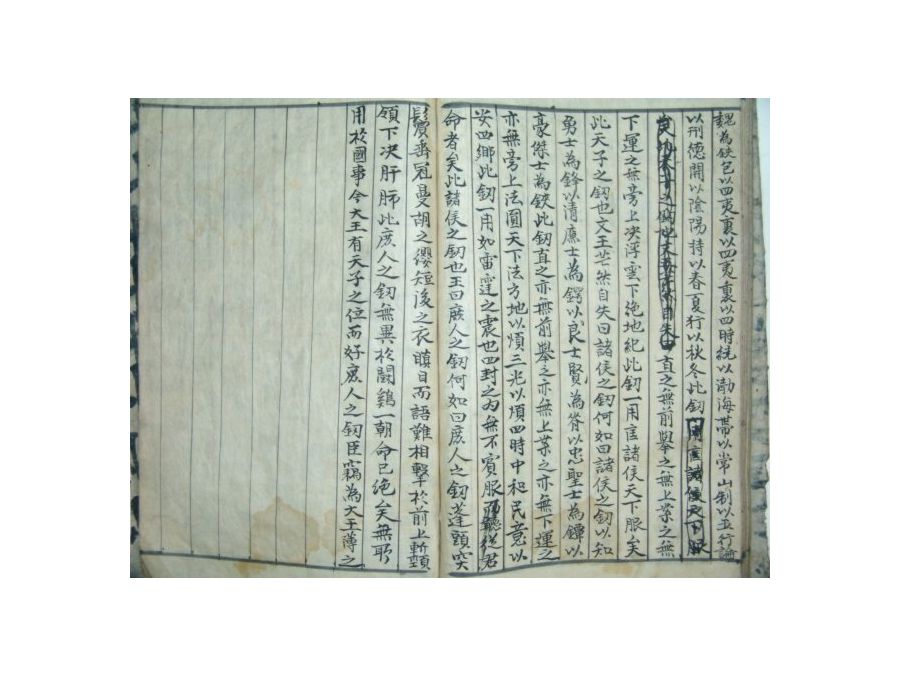 魏為鋏包以四夷裏以四夷裏以四時統以渤海帶以常山制以五行論
以刑德開以陰陽持以春夏行以秋冬此釰一用匡諸侯天下服
直之無前舉之無上案之無
下運之無旁上决浮雲下絶地紀此釰一用匡諸侯天下服矣
此天子之釰也文王芒然自失曰諸侯之釰何如曰諸侯之釰以知
勇士為鋒以清廉士為鍔以良士賢為脊以忠聖士為鐔以
豪傑士為鋏此釰直之亦無前舉之亦無上案之亦無下運之
亦無旁上法圓天下法方地以順三光以順四時中和民意以
安四鄉此釰一用如雷霆之震也四封之內無不賓服而聽從君
命者矣此諸侯之釰也王曰庶人之釰何如曰庶人之釰蓬頭突
鬂垂冠曼胡之纓短後之衣瞋目而語難相擊於前上斬頸
領下决肝肺此庶人之釰無異於鬪鷄一朝命已絶矣無所
用於國事今大王有天子之位而好庶人之釰臣竊為大王薄之